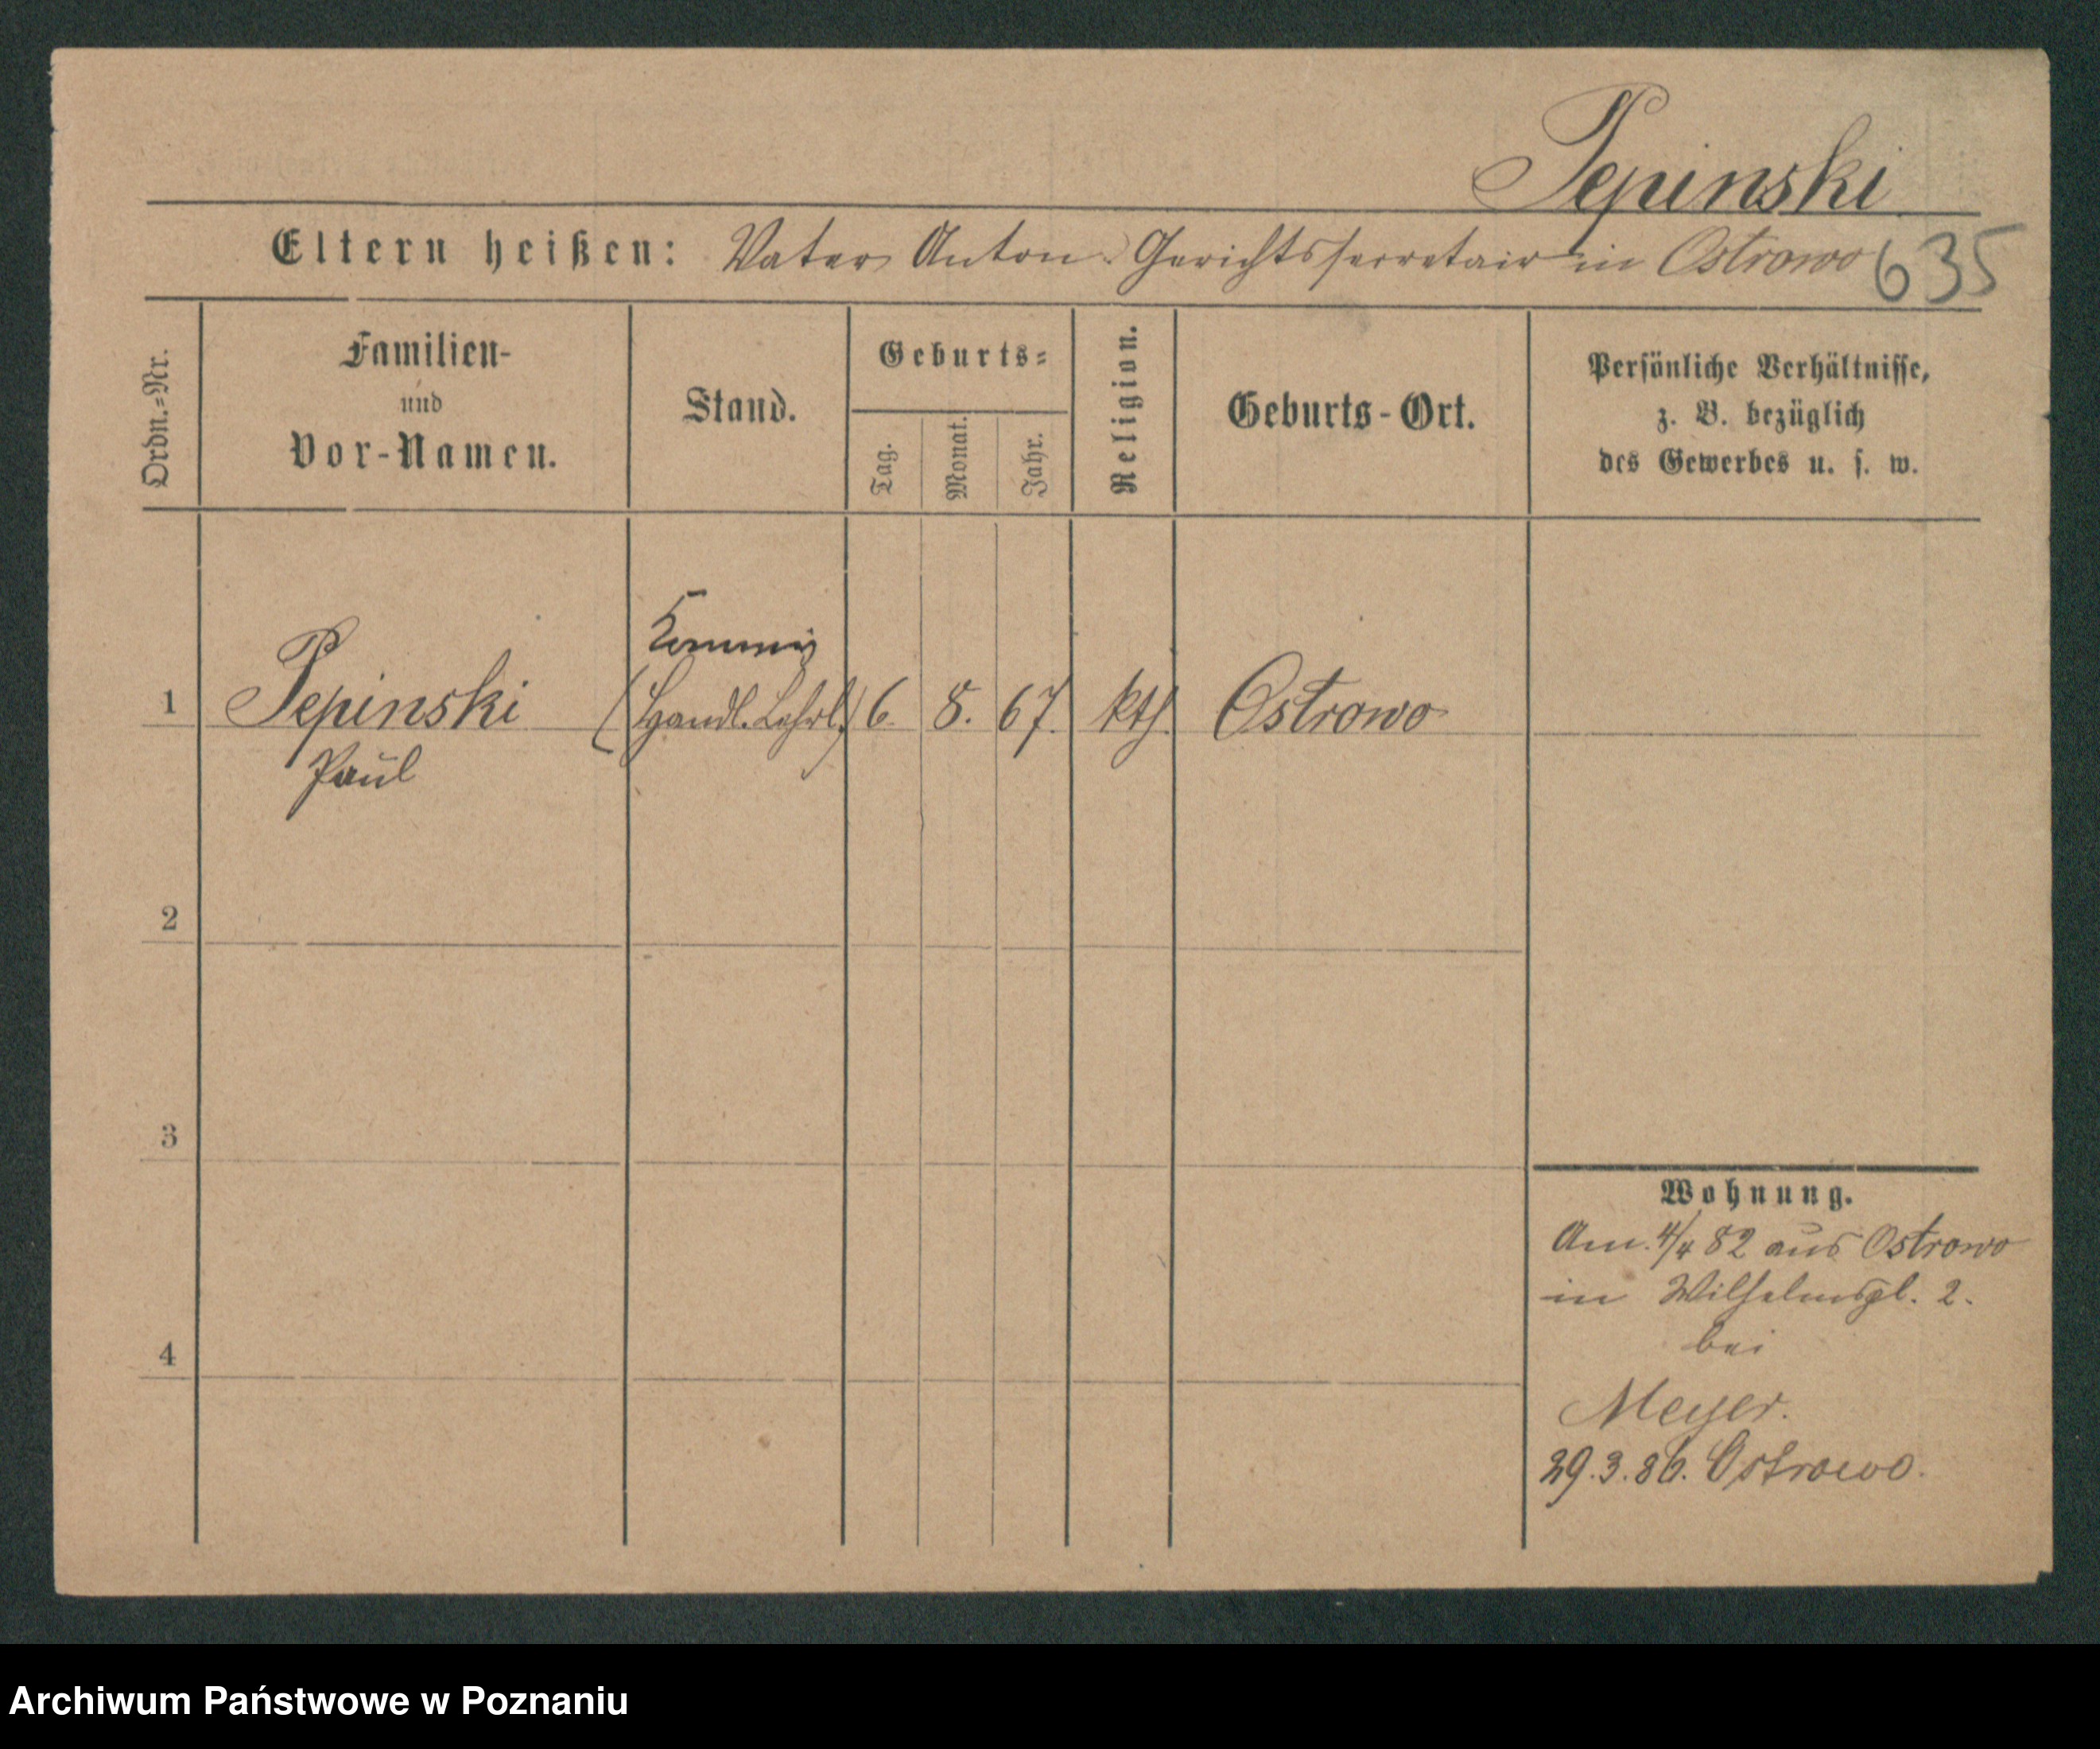 Pepinski
Eltern heißen: Vater Anton Gerichtssecretair in Ostrowo 635
Ordn.=Nr.
Familien-
und
Vor-Namen.
Stand.
Geburts=
Tag.
Monat.
Jahr.
Religion.
Geburts-Ort.
Persönliche Verhältnisse,
z. B. bezüglich
des Gewerbes u. s. w.
Kommis
1 Pepinski (Handl. Lehrl.) 6. 8. 67. kth. Ostrowo
Paul
2
3
4
Wohnung.
Am 4/4 82 aus Ostrowo
in Wilhelmspl. 2.
bei
Meyer.
29.3.86. Ostrowo.
Archiwum Państwowe w Poznaniu